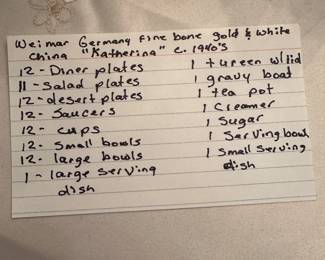 Weimar Germany Fine bone gold & white
China "Katherina" c. 1940's
12- Diner plates
11- Salad plates
12- desert plates
12- Saucers
12- cups
12- Small bowls
12- large bowls
1- large serving
dish
1 tureen w/lid
1 gravy boat
1 tea pot
1 Creamer
1 Sugar
1 Serving bowl
1 Small Serving
dish